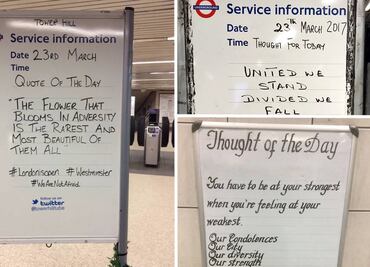 TOWER HILL
Service information
Date 23RD MARCH
Time
QUOTE OF THE DAY
"THE FLOWER THAT
BLOOMS IN ADVERSITY
IS THE RAREST AND
MOST BEAUTIFUL OF
THEM ALL"
#Londonisopen #Westminster
#WeAreNotAfraid
follow us on
twitter
@towerhilltube
UNDERGROUND
Service information
Date 23th MARCH 2017
Time THOUGHT FOR TODAY
UNITED WE
STAND
DIVIDED WE
FALL
Thought of the Day
You have to be at your strongest
when you're feeling at your
weakest.
Our Condolences
Our City
Our diversity
Our strength